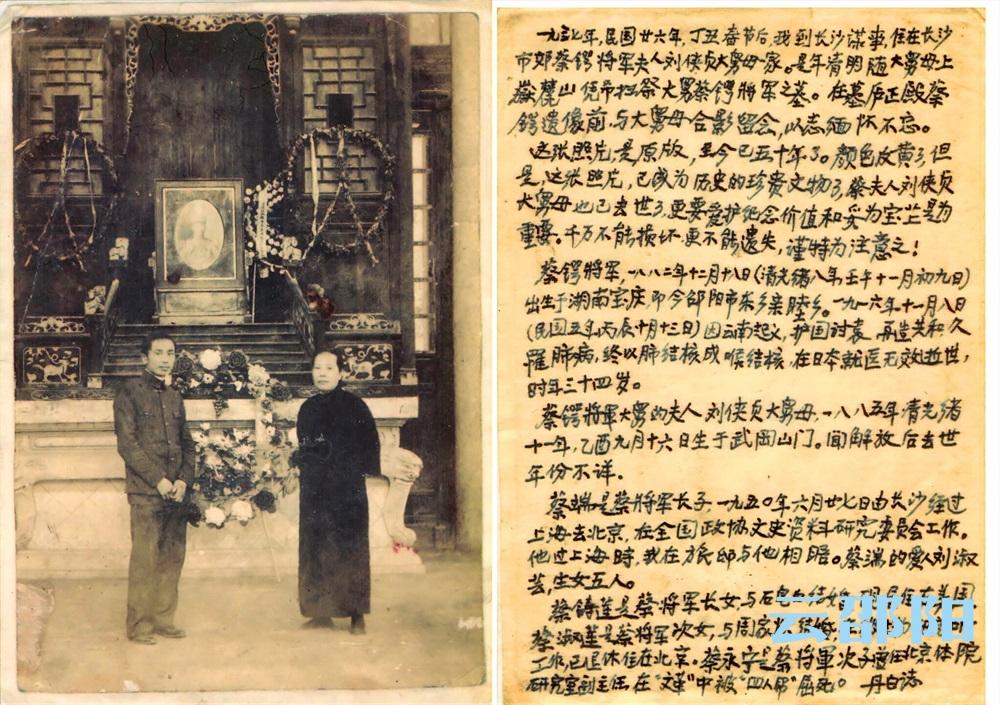 一九三七年,民国廿六年,丁丑春节后,我到长沙谋事,住在长沙
市郊蔡锷将军夫人刘侠贞大舅母家。是年清明随大舅母上
嶽麓山凭吊扫祭大舅蔡锷將军之墓。在墓庐正殿蔡
锷遗像前,与大舅母合影留念,以志缅怀不忘。
这张照片,是原版,至今已五十年了。颜色皮黄了,但
是,这张照片,已成为历史的珍贵文物了,蔡夫人刘侠贞
大舅母也已去世了,更要爱护纪念价值和
为宝
是为
重要。千万不能损坏,更不能遗失,谨特为注意之!
蔡锷將军,一八八二年十二月十八日(清光緒八年壬午十一月初九日)
出生于湖南宝庆即今邵阳市东乡亲睦乡。一九一六年十一月八日
(民国五年丙辰十月十三日)因云南起义,护国讨袁,再造共和久
罹肺病,终以肺结核成喉结核,在日本就医无效逝世,
时年三十四岁。
蔡锷將军大舅的夫人刘侠贞大舅母,一八八五年清光緒
十一年,乙酉九月十六日生于武岡山门。闻解放后去世
年份不详。
蔡端是蔡將军长子,一九五〇年六月廿七日由长沙经过
上海去北京,在全国政协文史资料研究委员会工作。
他过上海時,我在旅邸与他相晤。蔡端的爱人刘淑
芸,生女五人。
蔡铸莲是蔡將军长女,与石
结婚
居住在美国
蔡淑莲是蔡將军次女,与周家
结婚
工作,已退休住在北京。蔡永宁是蔡將军次子曾任北京体院
研究室副主任,在"文革"中被"四人帮"屈死。 丹白志
云邵阳